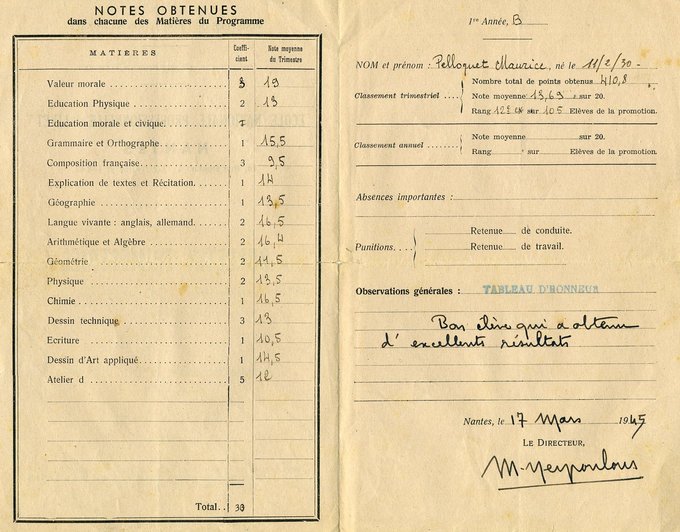 NOTES OBTENUES
dans chacune des Matières du Programme
MATIÈRES Coeffi-ciant Note moyenne du Trimestre
Valeur morale 3 19
Education Physique 2 13
Education morale et civique
Grammaire et Orthographe 1 15,5
Composition française 3 9,5
Explication de textes et Récitation. 1 14
Géographie 1 13,5
Langue vivante : anglais, allemand. 2 16,5
Arithmétique et Algèbre 2 16,4
Géométrie 2 11,5
Physique 2 13,5
Chimie 1 16,5
Dessin technique 3 13
Ecriture 1 10,5
Dessin d'Art appliqué 1 14,5
Atelier d 5 12
Total.. 33
1re Année, B
NOM et prénom : Pelloquet Maurice, né le 11/2/30-
Nombre total de points obtenus 410,8
Classement trimestriel Note moyenne 13,69 sur 20.
Rang 12e ex sur 105 Elèves de la promotion.
Note moyenne sur 20.
Classement annuel
Rang sur Elèves de la promotion.
Absences importantes :
Retenue de conduite.
Punitions.
Retenue de travail.
Observations générales : TABLEAU D'HONNEUR
Bon élève qui a obtenu
d'excellents résultats
Nantes, le 17 Mars 1945
LE DIRECTEUR,